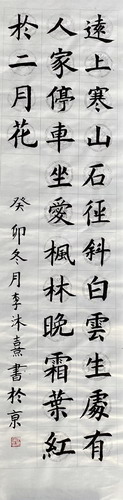 遠上寒山石徑斜白雲生處有
人家停車坐愛楓林晚霜葉紅
於二月花
癸卯冬月李沐熹書於京